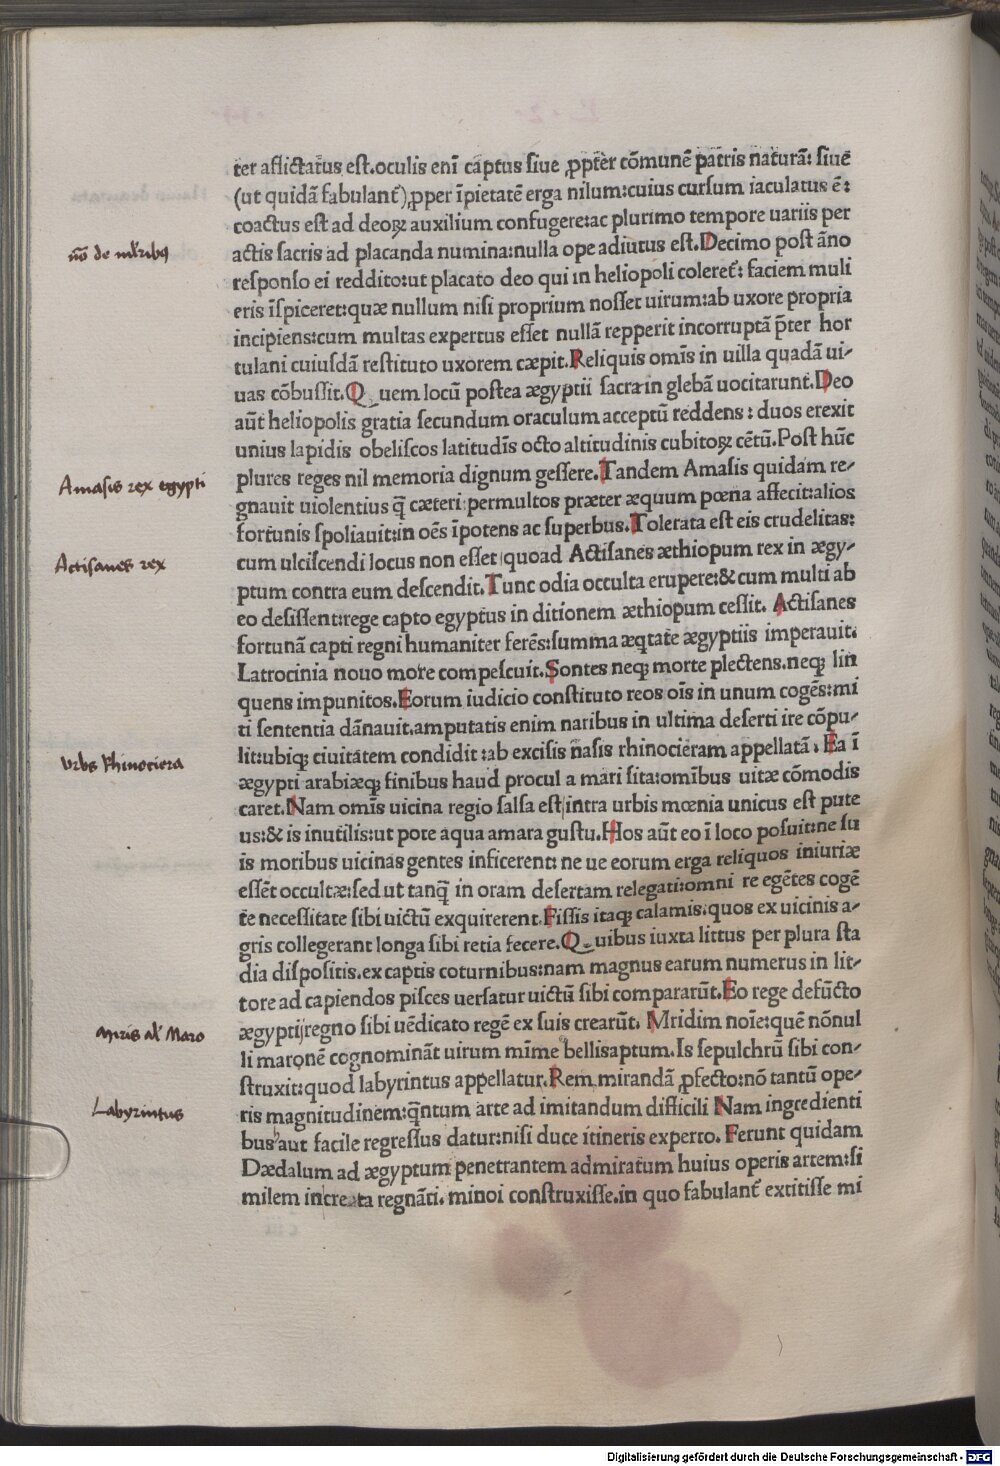 ter afflictatus eſt.oculis enī captus ſiue ꝓpter cōmunē patris naturā: ſiue
(ut quidā fabulant̄)ꝓpper īpietatē erga nilum:cuius curſum iaculatus ē:
coactus eſt ad deoꝝ auxilium confugere:ac plurimo tempore uariis per
nō de ml̄ribꝰ
actis ſacris ad placanda numina:nulla ope adiutus eſt.Decimo poſt āno
reſponſo ei reddito:ut placato deo qui in heliopoli coleret̄: faciem muli
eris īſpiceret:quæ nullum niſi proprium noſſet uirum:ab uxore propria
incipiens:cum multas expertus eſſet nullā repperit incorruptā p̄ter hor
tulani cuiuſdā reſtituto uxorem cæpit.Reliquis omīs in uilla quadā ui⸗
uas cōbuſſit.Quem locū poſtea ægyptii ſacra in glebā uocitarunt.Deo
aūt heliopolis gratia ſecundum oraculum acceptū reddens: duos erexit
unius lapidis obeliſcos latitudīs octo altitudinis cubitoꝝ cētū.Poſt hūc
Amasis rex egypti
plures reges nil memoria dignum geſſere.Tandem Amaſis quidam re⸗
gnauit uiolentius q̄ cæteri:permultos præter æquum pœna affecit:alios
fortunis ſpoliauit:in oēs īpotens ac ſuperbus.Tolerata eſt eis crudelitas:
Actisanes rex
cum ulciſcendi locus non eſſet quoad Actiſanes æthiopum rex in ægy⸗
ptum contra eum deſcendit.Tunc odia occulta erupere:&cum multi ab
eo deſiſſent:rege capto egyptus in ditionem æthiopum ceſſit. Actiſanes
fortunā capti regni humaniter ferēs:ſumma æqtate ægyptiis imperauit.
Latrocinia nouo more compeſcuit.Sontes neqꝫ morte plectens.neqꝫ lin
quens impunitos.Eorum iudicio conſtituto reos oīs in unum cogēs:mi
ti ſententia dānauit.amputatis enim naribus in ultima deſerti ire cōpu⸗
Vrbs Rhinociera
lit:ubiqꝫ ciuitatem condidit:ab exciſis naſis rhinocieram appellatā. Ea ī
ægypti arabiæqꝫ finibus haud procul a mari ſita:omībus uitæ cōmodis
caret.Nam omīs uicina regio ſalſa eſt intra urbis mœnia unicus eſt pute
us:& is inutilis:ut pote aqua amara guſtu.Hos aūt eo ī loco poſuit:ne ſu
is moribus uicinas gentes inficerent: ne ue eorum erga reliquos iniuriæ
eſſēt occultæ:ſed ut tanq̄ in oram deſertam relegati:omni re egētes cogē
te neceſſitate ſibi uictū exquirerent.Fiſſis itaqꝫ calamis:quos ex uicinis a⸗
gris collegerant longa ſibi retia fecere.Quibus iuxta littus per plura ſta
dia diſpoſitis.ex captis coturnibus:nam magnus earum numerus in lit⸗
tore ad capiendos piſces uerſatur uictū ſibi compararūt.Eo rege defūcto
Miris al' Maro
ægyptii regno ſibi uēdicato regē ex ſuis crearūt. Mridim noīe:quē nōnul
li maronē cognomināt uirum mīme bellisaptum.Is ſepulchrū ſibi con⸗
ſtruxit:quod labyrintus appellatur.Rem mirandā ꝓfecto:nō tantū ope⸗
Labyrintus
ris magnitudinem:q̄ntum arte ad imitandum difficili Nam ingredienti
bus aut facile regreſſus datur:niſi duce itineris experto. Ferunt quidam
Dædalum ad ægyptum penetrantem admiratum huius operis artem:ſi
milem in creta regnāti. minoi conſtruxiſſe.in quo fabulant̄ extitiſſe mi
Digitalisierung gefördert durch die Deutsche Forschungsgemeinschaft - DFG